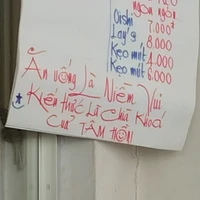 ngon ngon
Oishi 7.000đ
Lay's 8.000
Kẹo mút 4.000
Kẹo mút 6.000
Ăn uống Là Niềm Vui
Kiến thức Là Chìa Khoá
Của TÂM Hồn